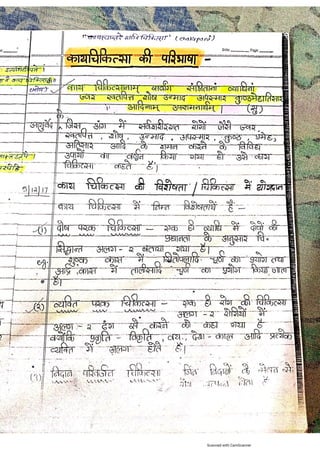 "कायस्यान्तरग्नेः चिकित्सा" (चक्रपाणि)
Date Page
कायचिकित्सा की परिभाषा -
काय चिकित्सानाम् सर्वांग संश्रितानां व्याधिनां
ज्वर रक्तपित्त शोष उन्माद अपस्मार कुष्ठमेहातिसार
आदिनाम् उपशमनार्थम। (सु)
आयुर्वेद के जिस अंग में सर्वशरीरगत रोगों जैसे ज्वर,
रक्तपित्त, शोष, उन्माद, अपस्मार, कुष्ठ, प्रमेह,
अतिसार आदि के शमन करने के विविध
उपायों का वर्णन किया गया हो उसे काय
चिकित्सा कहते हैं।
9/12/17
काय चिकित्सा की विशेषता / चिकित्सा में योगदान
काय चिकित्सा में निम्न विशेषतायें हैं -
(1) दोष परक चिकित्सा - एक ही व्याधि में दोषों की
प्रधानता के अनुसार चि.
सिद्धान्त अलग-२ बताया गया है।
eg. शुष्क कास में सितोपलादि चूर्ण का प्रयोग तथा
आर्द्र कास में तालीसादि चूर्ण का प्रयोग किया जाता
है।
(2) व्यक्ति परक चिकित्सा - एक ही रोग की चिकित्सा
अलग-२ रोगियों में
अलग-२ ढंग से करने को कहा गया है
क्योंकि प्रकृति - विकृति, वय, देश-काल आदि प्रत्येक
व्यक्ति में अलग होते हैं।
(3) निदान परिवर्जन चिकित्सा जिन निदानों के सेवन से
रोग उत्पन्न होता है
Scanned with CamScanner